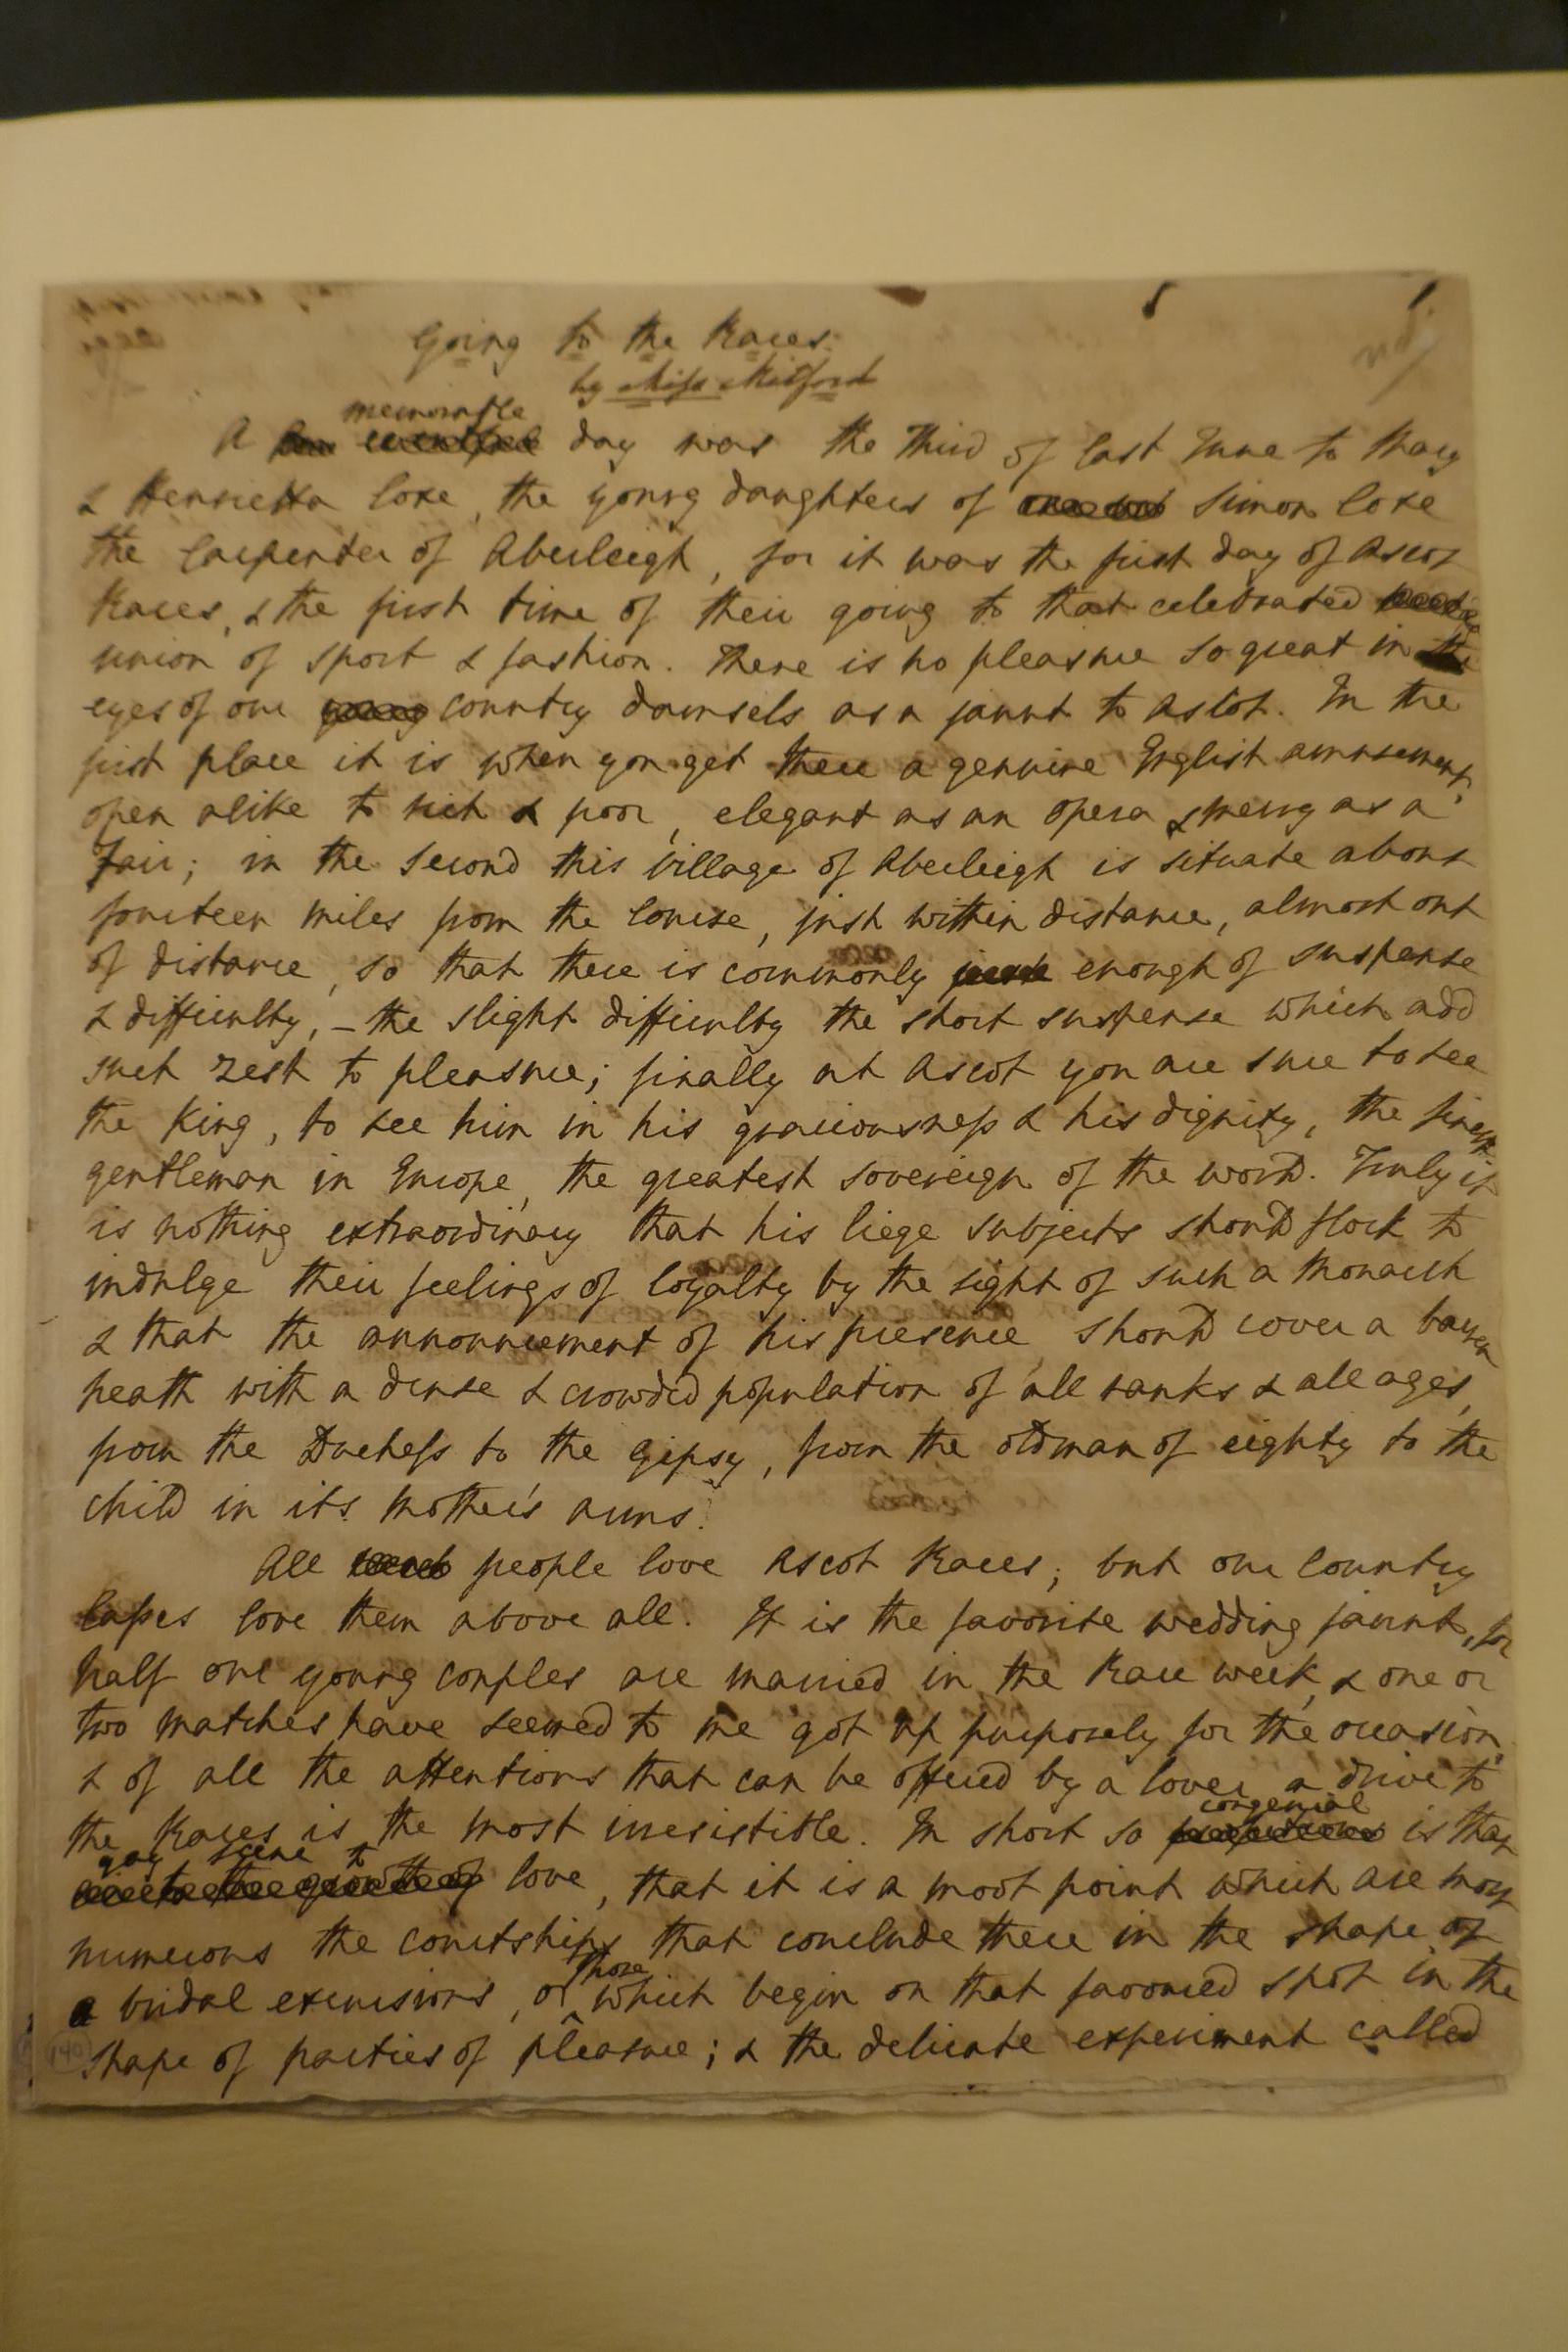 Going to the Races.
by Miss Mitford
memorable
A day was the third of last June to Mary
& Henrietta Coxe, the young daughters of Simon Coxe
the Carpenter of Aberleigh, for it was the first day of Ascot
Races, & the first time of their going to that celebrated
union of sport & fashion. There is no pleasure so great in the
eyes of our young country damsels as a jaunt to Ascot. In the
first place it is when you get there a genuine English amusement,
open alike to rich & poor, elegant as an opera & merry as a
Fair; in the second this village of Aberleigh is situate about
fourteen miles from the Course, just within distance, almost out
of distance, so that there is commonly just enough of suspense
& difficulty, – the slight difficulty the short suspense which add
such zest to pleasure; finally at Ascot you are sure to see
the King, to see him in his graciousness & his dignity, the finest
gentleman in Europe, the greatest sovereign of the world. Truly it
is nothing extraordinary that his liege subjects should flock to
indulge their feelings of loyalty by the sight of such a Monarch
& that the announcement of his presence should cover a barren
heath with a dense & crowded population of all ranks & all ages,
from the Duchess to the gipsy, from the old man of eighty to the
child in its mother's arms.
All people love Ascot Races; but our Country
lasses love them above all. It is the favorite wedding jaunt, for
half our young couples are married in the Race week, & one or
two matches have seemed to me got up purposely for the occasion,
& of all the attentions that can be offered by a lover a drive to
congenial
the Races is the most irresistible. In short so is that
gay scene to
love, that it is a moot point which are most
numerous the courtships that conclude there in the shape of
those
bridal excursions, or which begin on that favoured spot in the
shape of parties of pleasure; & the delicate experiment called